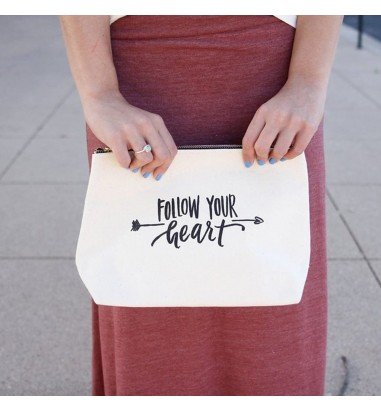 FOLLOW YOUR
heart